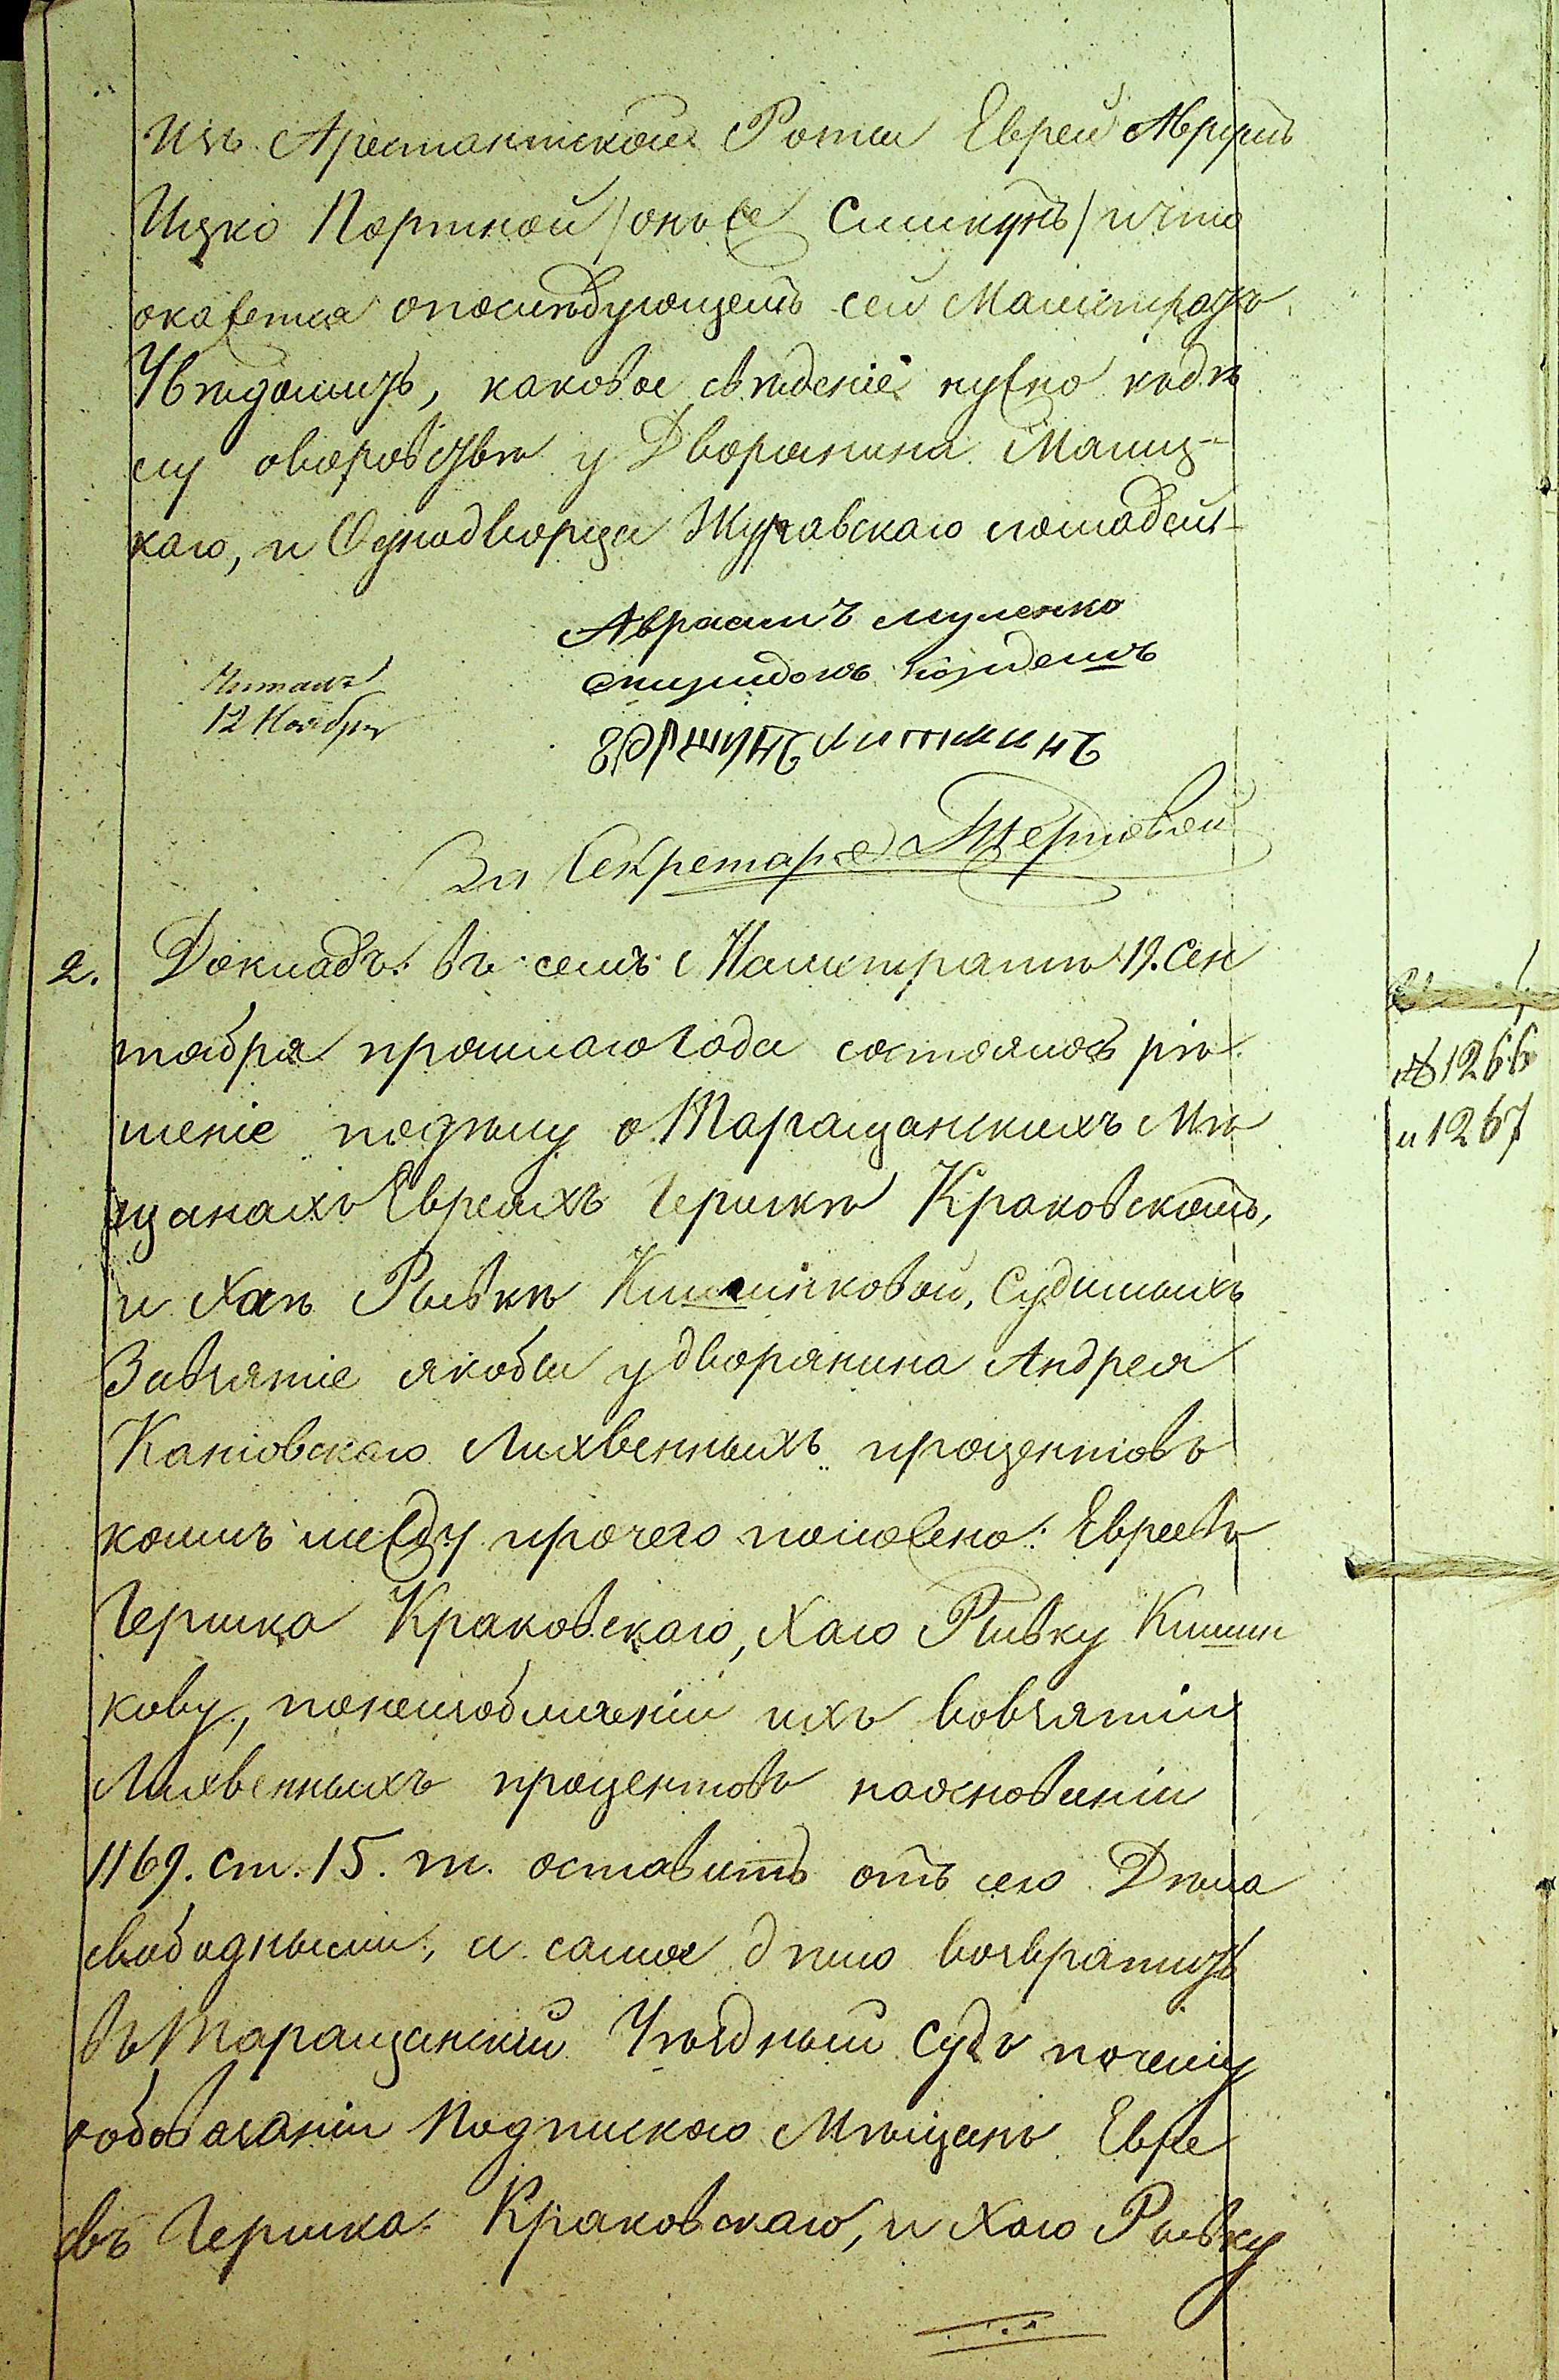 изъ Арестантской Роты Еврей Аврумъ
Ицко Портной /онъ же Слипкунъ/ и что
окажется о послѣдующемъ сей Магистратъ
Увѣдомить, каковое свѣденіе нужно къ дѣ
лу о воровствѣ у Дворянина
каго, и Однодворца Журавскаго лошадей
Авраамъ Муленко
Читалъ
12 Ноября
За Секретаря Терновой
2. Докладъ: въ семъ Магистратѣ 19. Сен
тября прошлаго года состоялось рѣ
№ 1266
шеніе по дѣлу о Таращанскихъ Мѣ
и 1267
щанахъ Евреяхъ Гершкѣ Краковскомъ,
и Хаѣ Рывкѣ Судимыхъ
За взятіе якобы у дворянина Андрея
Каніовскаго Лихвенныхъ процентовъ
коимъ между прочего положено: Евреевъ
Гершка Краковскаго, Хаю Рывку
кову, по неизобличеніи ихъ во взятіи
Лихвенныхъ процентовъ на основаніи
1169. ст. 15. т. оставить отъ сего Дѣла
свободными, а самое дѣло возвратить
въ Таращанскій Уѣздный Судъ почему
обовязаніи Подпискою Мѣщанъ Евре
евъ Гершка Краковскаго, и Хаю Рывку